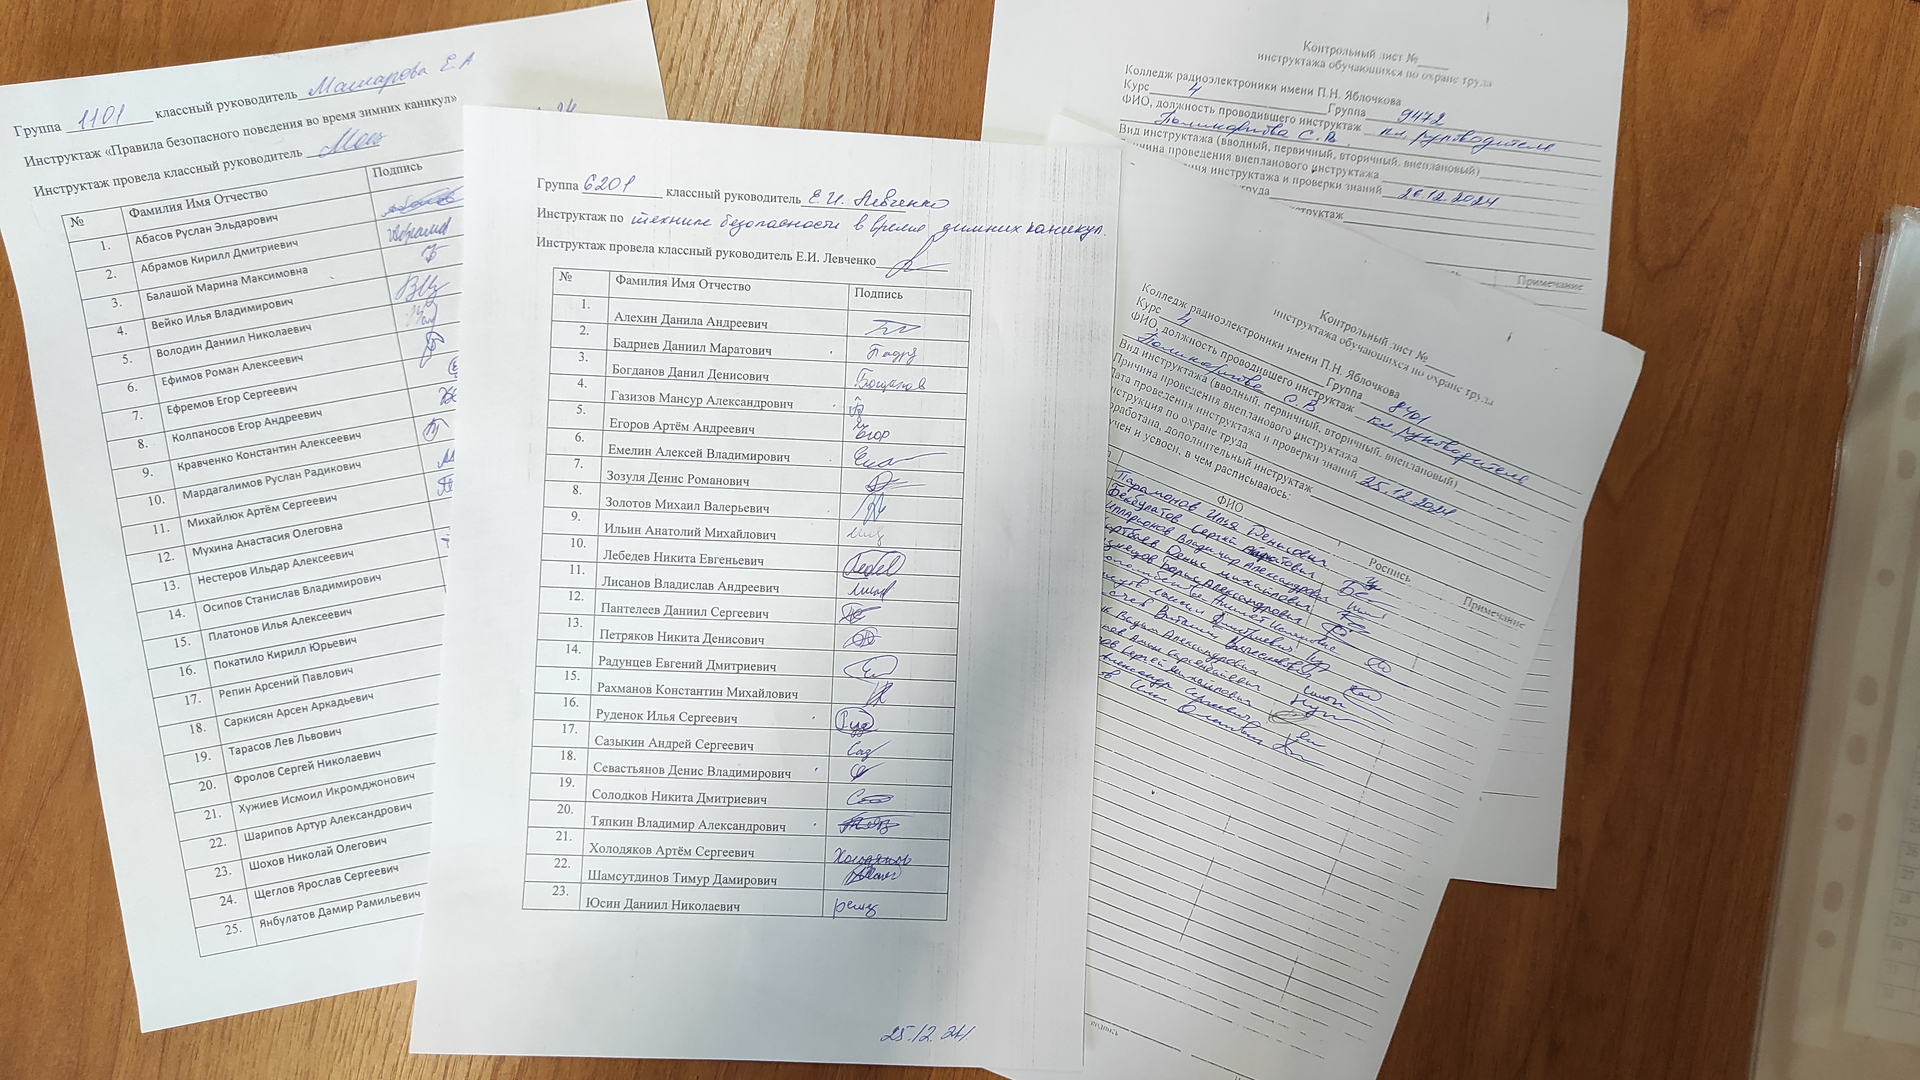 Группа 1101 классный руководитель Машарова Е.А
Инструктаж «Правила безопасного поведения во время зимних каникул»
Инструктаж провела классный руководитель
№ Фамилия Имя Отчество Подпись
1. Абасов Руслан Эльдарович
2. Абрамов Кирилл Дмитриевич
3. Балашой Марина Максимовна
4. Вейко Илья Владимирович
5. Володин Даниил Николаевич
6. Ефимов Роман Алексеевич
7. Ефремов Егор Сергеевич
8. Колпаносов Егор Андреевич
9. Кравченко Константин Алексеевич
10. Мардагалимов Руслан Радикович
11. Михайлюк Артём Сергеевич
12. Мухина Анастасия Олеговна
13. Нестеров Ильдар Алексеевич
14. Осипов Станислав Владимирович
15. Платонов Илья Алексеевич
16. Покатило Кирилл Юрьевич
17. Репин Арсений Павлович
18. Саркисян Арсен Аркадьевич
19. Тарасов Лев Львович
20. Фролов Сергей Николаевич
21. Хужиев Исмоил Икромджонович
22. Шарипов Артур Александрович
23. Шохов Николай Олегович
24. Щеглов Ярослав Сергеевич
25. Янбулатов Дамир Рамильевич
Группа 6201 классный руководитель Е.И. Левченко
Инструктаж по технике безопасности в время зимних каникул.
Инструктаж провела классный руководитель Е.И. Левченко
№ Фамилия Имя Отчество Подпись
1. Алехин Данила Андреевич
2. Бадриев Даниил Маратович
3. Богданов Данил Денисович Богданов
4. Газизов Мансур Александрович
5. Егоров Артём Андреевич Егор
6. Емелин Алексей Владимирович
7. Зозуля Денис Романович
8. Золотов Михаил Валерьевич
9. Ильин Анатолий Михайлович
10. Лебедев Никита Евгеньевич
11. Лисанов Владислав Андреевич
12. Пантелеев Даниил Сергеевич
13. Петряков Никита Денисович
14. Радунцев Евгений Дмитриевич
15. Рахманов Константин Михайлович
16. Руденок Илья Сергеевич
17. Сазыкин Андрей Сергеевич
18. Севастьянов Денис Владимирович
19. Солодков Никита Дмитриевич
20. Тяпкин Владимир Александрович
21. Холодяков Артём Сергеевич Холодяков
22. Шамсутдинов Тимур Дамирович
23. Юсин Даниил Николаевич
25.12.24.
Контрольный лист №
инструктажа обучающихся по охране труда
Колледж радиоэлектроники имени П.Н. Яблочкова
Курс 4 Группа 9472
ФИО, должность проводившего инструктаж кл. руководитель
С.В.
Вид инструктажа (вводный, первичный, вторичный, внеплановый)
Причина проведения внепланового инструктажа
инструктажа и проверки знаний 26.12.2024
труда
инструктаж
Примечание
Контрольный лист №
инструктажа обучающихся по охране труда
Колледж радиоэлектроники имени П.Н. Яблочкова
Курс 4 Группа 8401
ФИО, должность проводившего инструктаж кл. руководитель
С.В
Вид инструктажа (вводный, первичный, вторичный, внеплановый)
Причина проведения внепланового инструктажа
Дата проведения инструктажа и проверки знаний 25.12.2024
по охране труда
дополнительный инструктаж
и усвоен, в чем расписываюсь:
ФИО Роспись Примечание
Парамонов Илья Денисович
Бекбулатов Сергей
Владимир Александрович
Денис Михайлович
Александрович
Вадим Александрович
Сергей Михайлович
Александр Сергеевич
подпись